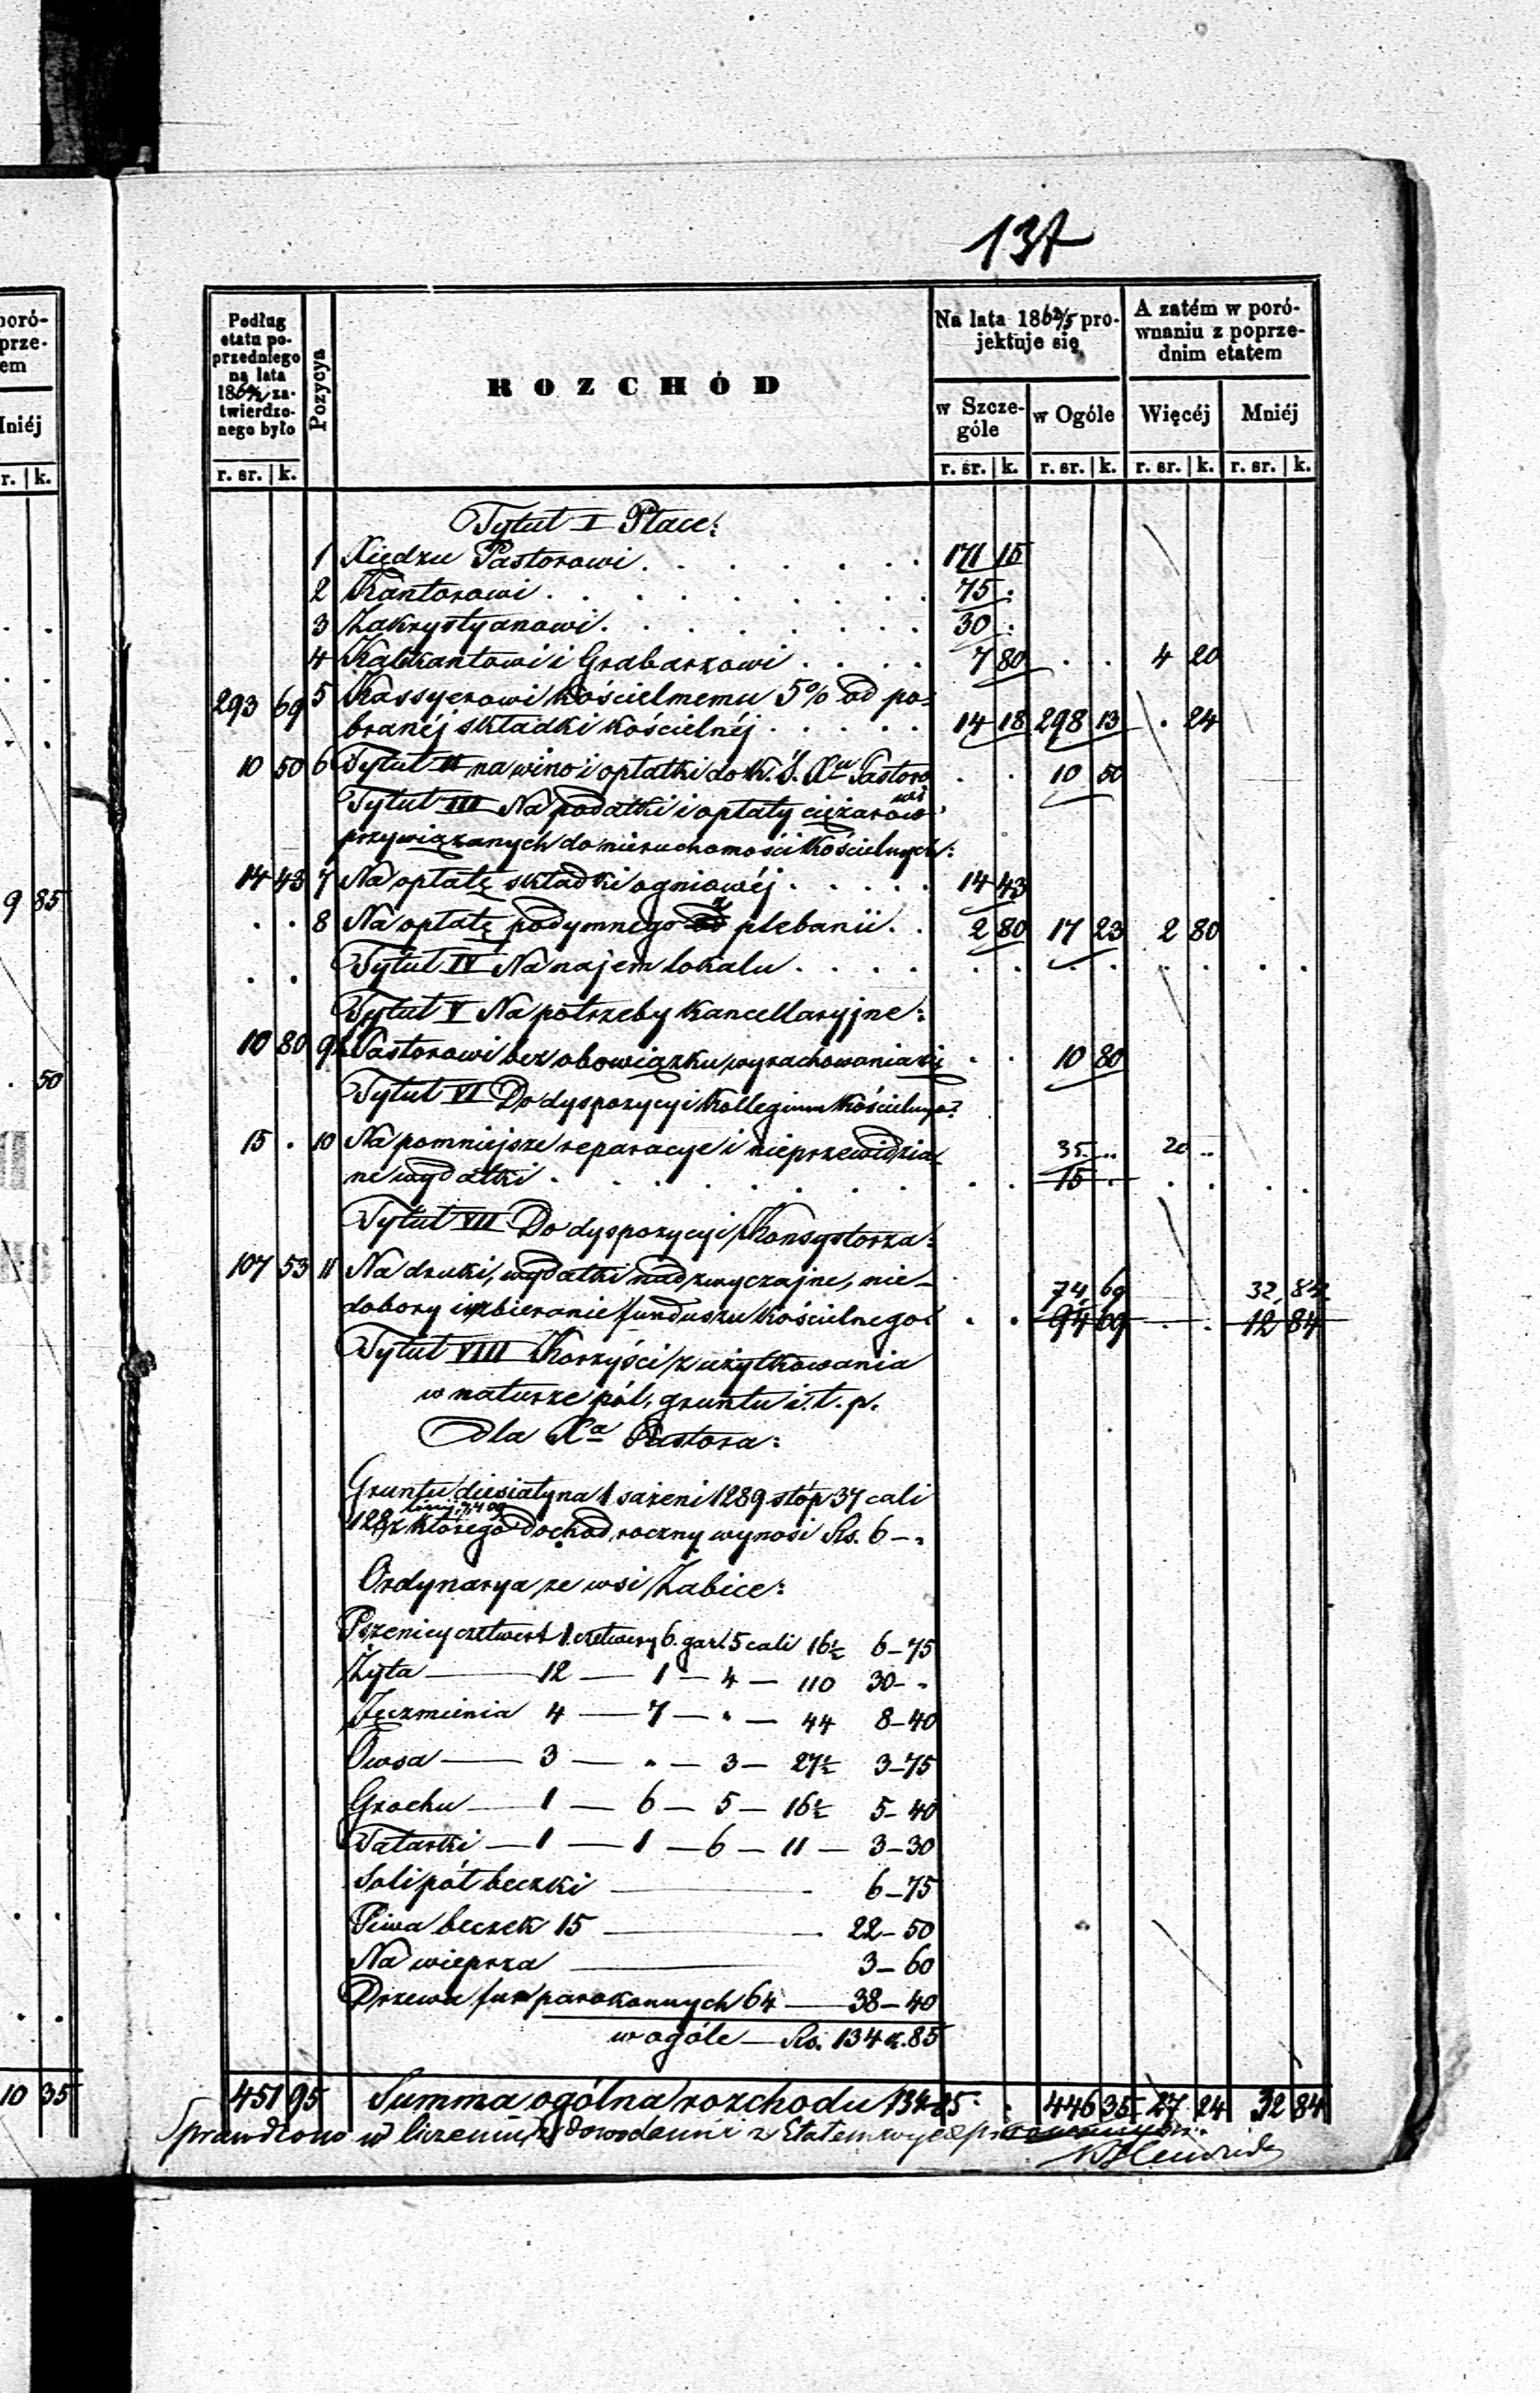 137
poró-
prze-
em
Mniéj
r. k.
9 85
. 50
10 35
Podług etatu poprzedniego na lata 186 0/2 zatwierdzonego było
Pozycya
ROZCHÓD
Na lata 186 2/5 projektuje się
A zatém w porównaniu z poprzednim etatem
w Szczególe
w Ogóle
Więcéj
Mniéj
r. sr. k. r. sr. k. r. sr. k. r. sr. k. r. sr. k.
Tytuł I Płace:
1 Xiędzu Pastorowi . . . . . . . 171 15
2 Kantorowi . . . . . . . . 75 .
3 Zakrystyanowi . . . . . . . 30 .
4 Kalikantowi i Grabarzowi . . . . 7 80 . . 4 20
293 69 5 Kassyerowi kościelnemu 5% od po-
branéj składki kościelnéj . . . . . 14 18 298 13 . 24
10 50 6 Tytuł II na wino i opłatki do K. Ś. Xu Pastoro
wi . . 10 50
Tytuł III Na podatki i opłaty ciężarów
przywiązanych do nieruchomości kościelnych:
14 43 7 Na opłatę składki ogniowéj . . . . . 14 43
. . 8 Na opłatę podymnego z plebanii . . 2 80 17 23 2 80
. . Tytuł IV Na najem lokalu . . . . . . . . . . . .
Tytuł V Na potrzeby kancellaryjne:
10 80 9 Pastorowi bez obowiązku wyrachowania się . . 10 80
Tytuł VI Do dyspozycyi Kollegium Kościelnego:
15 . 10 Na pomniejsze reparacye i nieprzewidzia- 35 .. 20 ..
ne wydatki . . . . . . . . . 15 . . . . .
Tytuł VII Do dyspozycyi Konsystorza:
107 53 11 Na druki, wydatki nadzwyczajne, nie- 74, 69 32, 84.
dobory i uzbieranie funduszu kościelnego . . 94 69 . . 12 84
Tytuł VIII Korzyści z użytkowania
w naturze pól, gruntu i. t. p.
Dla Xa Pastora:
Gruntu diesiatyna 1 sażeni 1289 stóp 37 cali
128 z którego dochód roczny wynosi Rs. 6 – .
Ordynarya ze wsi Żabice:
Pszenicy czetwert 1 czetwery 6. gar 5 cali 16½ 6–75
Żyta — 12 — 1 — 4 — 110 30– .
Jęczmienia 4 — 7 — . — 44 8–40
Owsa — 3 — . — 3 — 27½ 3–75
Grochu — 1 — 6 — 5 — 16½ 5–40
Tatarki — 1 — 1 — 6 — 11 — 3–30
Soli pół beczki — 6–75
Piwa beczek 15 — 22–50
Na wieprza — 3–60
Drzewa fur parokonnych 64 — 38–40
w ogóle — Rs. 134 k. 85
451 95 Summa ogólna rozchodu 134 85 . . 446 35 27 24 32 84
Sprawdzono w liczeniu, z dowodami i z Etatem